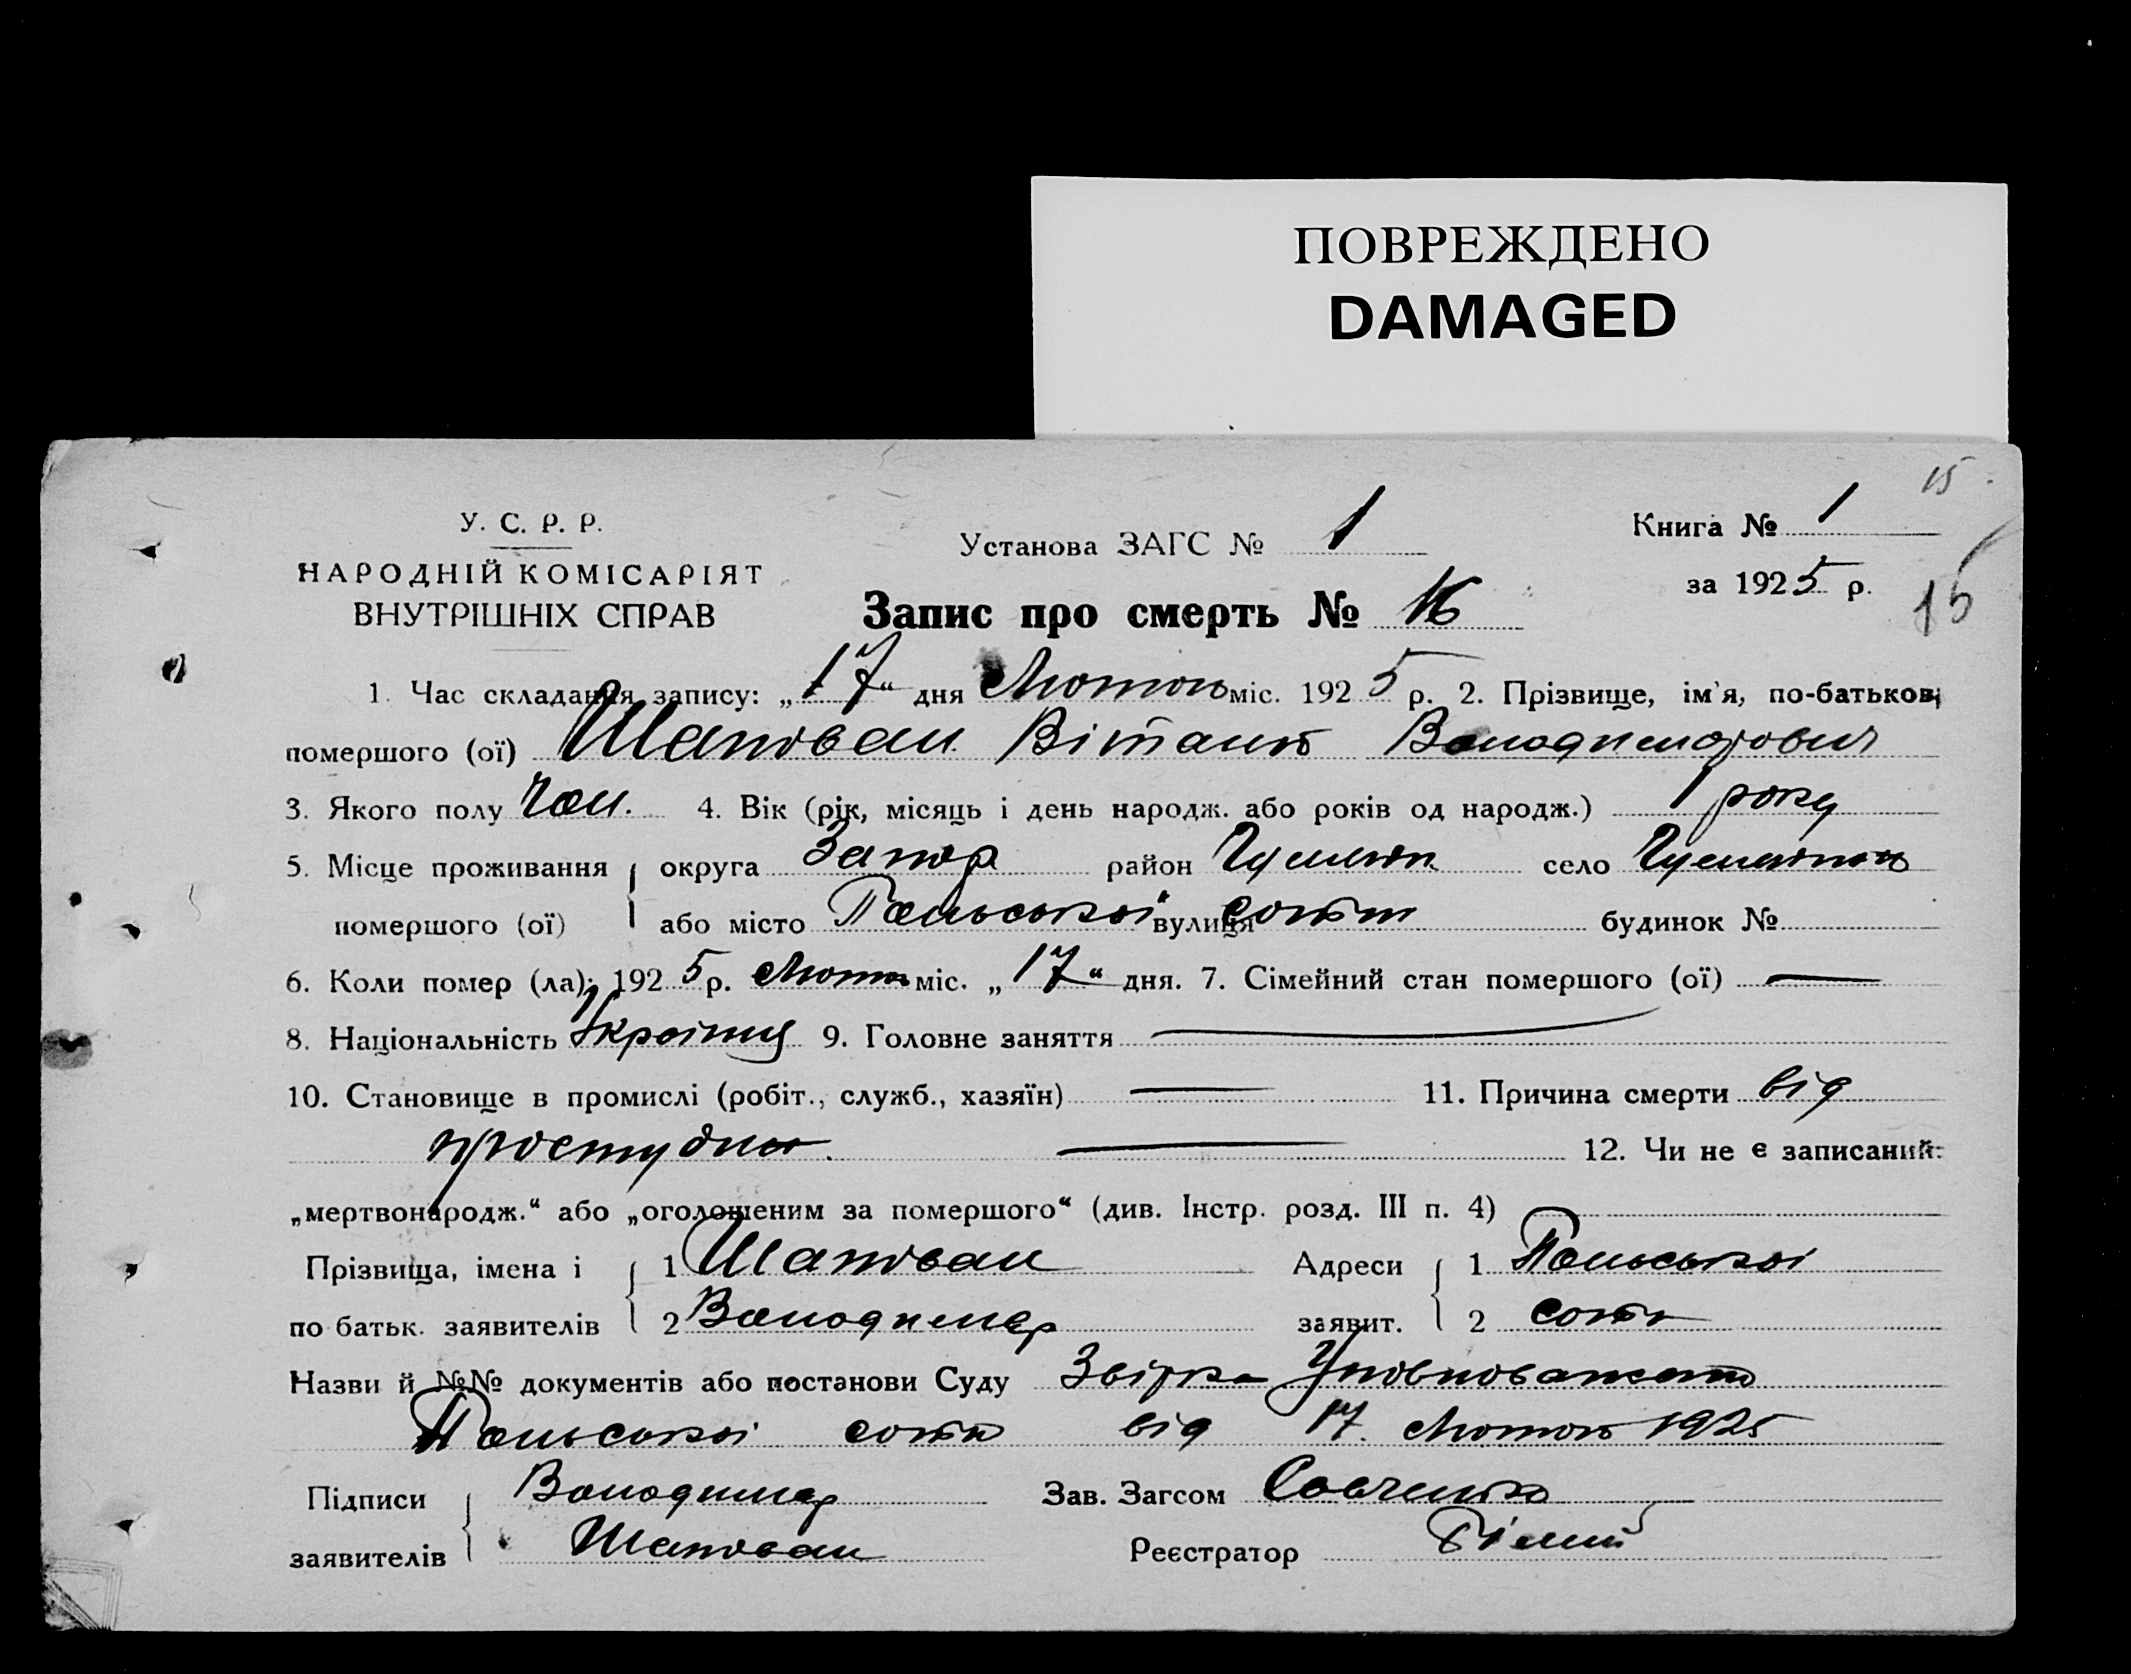 ПОВРЕЖДЕНО
DAMAGED
15
У. С. Р. Р.
НАРОДНІЙ КОМІСАРІЯТ
ВНУТРІШНІХ СПРАВ
Установа ЗАГС № 1
Книга № 1
за 1925 р.
15
Запис про смерть № 16
1. Час складання запису: „17“ дня Лютого міс. 1925 р. 2. Прізвище, ім'я, по-батькові
помершого (ої) Шаповал Віталій Володимирович
3. Якого полу Чол. 4. Вік (рік, місяць і день народж. або років од народж.) 1 року
5. Місце проживання округа Запор район село
помершого (ої) або місто Польської вулиця сотні будинок №
6. Коли помер (ла): 1925 р. Лютого міс. „17“ дня. 7. Сімейний стан помершого (ої) —
8. Національність Україн 9. Головне заняття —
10. Становище в промислі (робіт., служб., хазяїн) — 11. Причина смерти від
простуди. — 12. Чи не є записаний:
„мертвонародж.“ або „оголошеним за помершого“ (див. Інстр. розд. III п. 4)
Прізвища, імена і 1 Шаповал Адреси 1 Польської
по батьк. заявителів 2 Володимер заявит. 2 сотні
Назви й №№ документів або постанови Суду Уповноважено
Польської сотні від 17. Лютого 1925
Підписи Володимер Зав. Загсом Савченко
заявителів Шаповал Реєстратор Білий